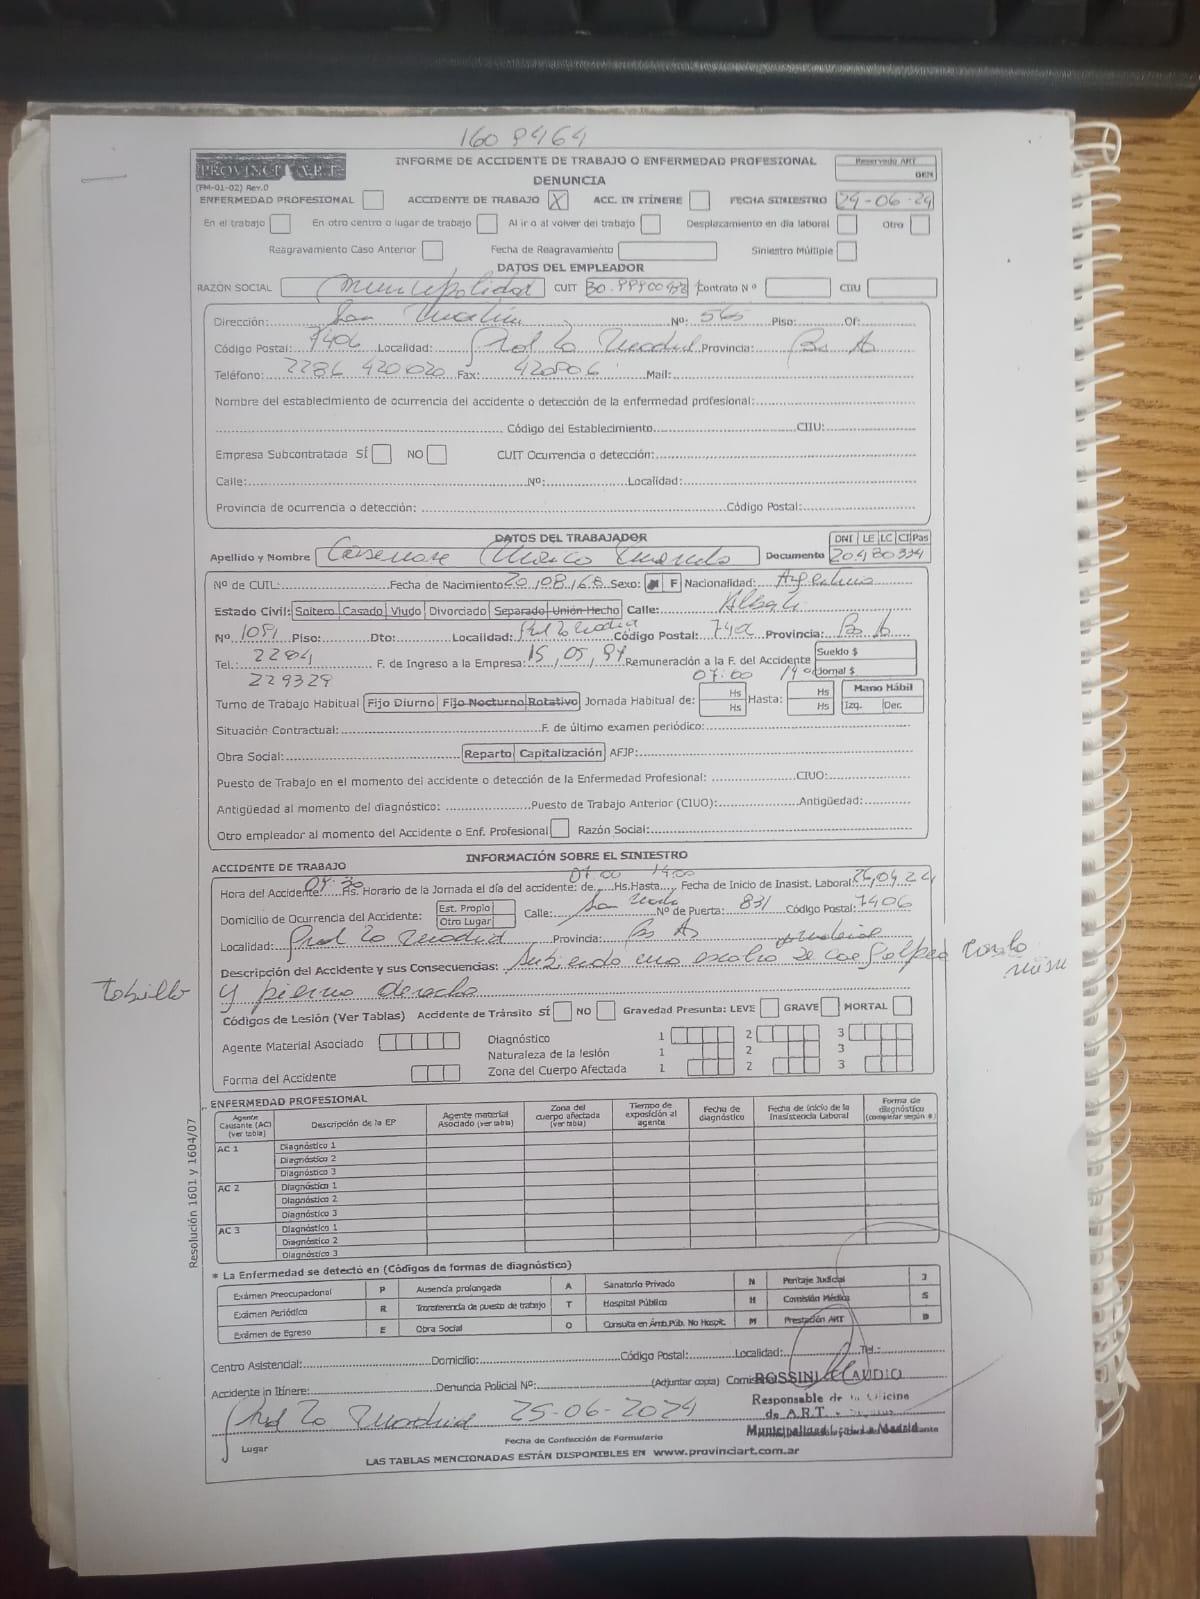 160 9464
PROVINCIA A.R.T.
INFORME DE ACCIDENTE DE TRABAJO O ENFERMEDAD PROFESIONAL
Reservado ART
GEN
DENUNCIA
(FM-01-02) Rev.0
ENFERMEDAD PROFESIONAL ACCIDENTE DE TRABAJO X ACC. IN ITÍNERE FECHA SINIESTRO 24-06-24
En el trabajo En otro centro o lugar de trabajo Al ir o al volver del trabajo Desplazamiento en día laboral Otro
Reagravamiento Caso Anterior Fecha de Reagravamiento Siniestro Múltiple
DATOS DEL EMPLEADOR
RAZÓN SOCIAL Municipalidad CUIT Contrato Nº CIIU
Dirección: San Martin Nº: 565 Piso: Of:
Código Postal: 7406 Localidad: Gral La Madrid Provincia: Bs As
Teléfono: 2286 420020 Fax: Mail:
Nombre del establecimiento de ocurrencia del accidente o detección de la enfermedad profesional:
Código del Establecimiento CIIU:
Empresa Subcontratada SÍ NO CUIT Ocurrencia o detección:
Calle: Nº: Localidad:
Provincia de ocurrencia o detección: Código Postal:
DATOS DEL TRABAJADOR
DNI LE LC CI Pas
Apellido y Nombre Documento 20480334
Nº de CUIL: Fecha de Nacimiento 20/08/68 Sexo: F Nacionalidad: Argentino
Estado Civil: Soltero Casado Viudo Divorciado Separado Unión Hecho Calle:
Nº 1051 Piso: Dto: Localidad: Gral La Madrid Código Postal: Provincia: Bs A
Tel.: 2284 F. de Ingreso a la Empresa: 15/05/97 Remuneración a la F. del Accidente Sueldo $
Jornal $
229329 07:00
Turno de Trabajo Habitual Fijo Diurno Fijo Nocturno Rotativo Jornada Habitual de: Hs Hasta: Hs Mano Hábil
Hs Hs Izq. Der.
Situación Contractual: F. de último examen periódico:
Obra Social: Reparto Capitalización AFJP:
Puesto de Trabajo en el momento del accidente o detección de la Enfermedad Profesional: CIUO:
Antigüedad al momento del diagnóstico: Puesto de Trabajo Anterior (CIUO): Antigüedad:
Otro empleador al momento del Accidente o Enf. Profesional Razón Social:
INFORMACIÓN SOBRE EL SINIESTRO
ACCIDENTE DE TRABAJO
Hora del Accidente: Hs. Horario de la Jornada el día del accidente: de 07:00 Hs.Hasta 14:00 Fecha de Inicio de Inasist. Laboral:
Domicilio de Ocurrencia del Accidente: Est. Propio Calle: San Martin Nº de Puerta: 831 Código Postal: 7406
Otro Lugar
Localidad: Gral La Madrid Provincia: Bs As
Descripción del Accidente y sus Consecuencias: Subiendo una escalera se cae golpea
tobillo y pierna derecha
Códigos de Lesión (Ver Tablas) Accidente de Tránsito SÍ NO Gravedad Presunta: LEVE GRAVE MORTAL
Agente Material Asociado Diagnóstico 1 2 3
Naturaleza de la lesión 1 2 3
Forma del Accidente Zona del Cuerpo Afectada 1 2 3
ENFERMEDAD PROFESIONAL
Agente Causante (AC) (ver tabla) Descripción de la EP Agente material Asociado (ver tabla) Zona del cuerpo afectada (ver tabla) Tiempo de exposición al agente Fecha de diagnóstico Fecha de inicio de la Inasistencia Laboral Forma de diagnóstico (completar según *)
AC 1 Diagnóstico 1
Diagnóstico 2
Diagnóstico 3
AC 2 Diagnóstico 1
Diagnóstico 2
Diagnóstico 3
AC 3 Diagnóstico 1
Diagnóstico 2
Diagnóstico 3
Resolución 1601 y 1604/07
* La Enfermedad se detectó en (Códigos de formas de diagnóstico)
Exámen Preocupacional P Ausencia prolongada A Sanatorio Privado N Peritaje Judicial J
Exámen Periódico R Transferencia de puesto de trabajo T Hospital Público H Comisión Médica S
Exámen de Egreso E Obra Social O Consulta en Ámb.Púb. No Hospit. M Prestación ART B
Centro Asistencial: Domicilio: Código Postal: Localidad: Tel.:
Accidente in Itínere: Denuncia Policial Nº: (Adjuntar copia)
ROSSINI CLAUDIO
Responsable de la Oficina
de A.R.T.
Gral La Madrid 25-06-2024
Lugar Fecha de Confección de Formulario
LAS TABLAS MENCIONADAS ESTÁN DISPONIBLES EN www.provinciart.com.ar